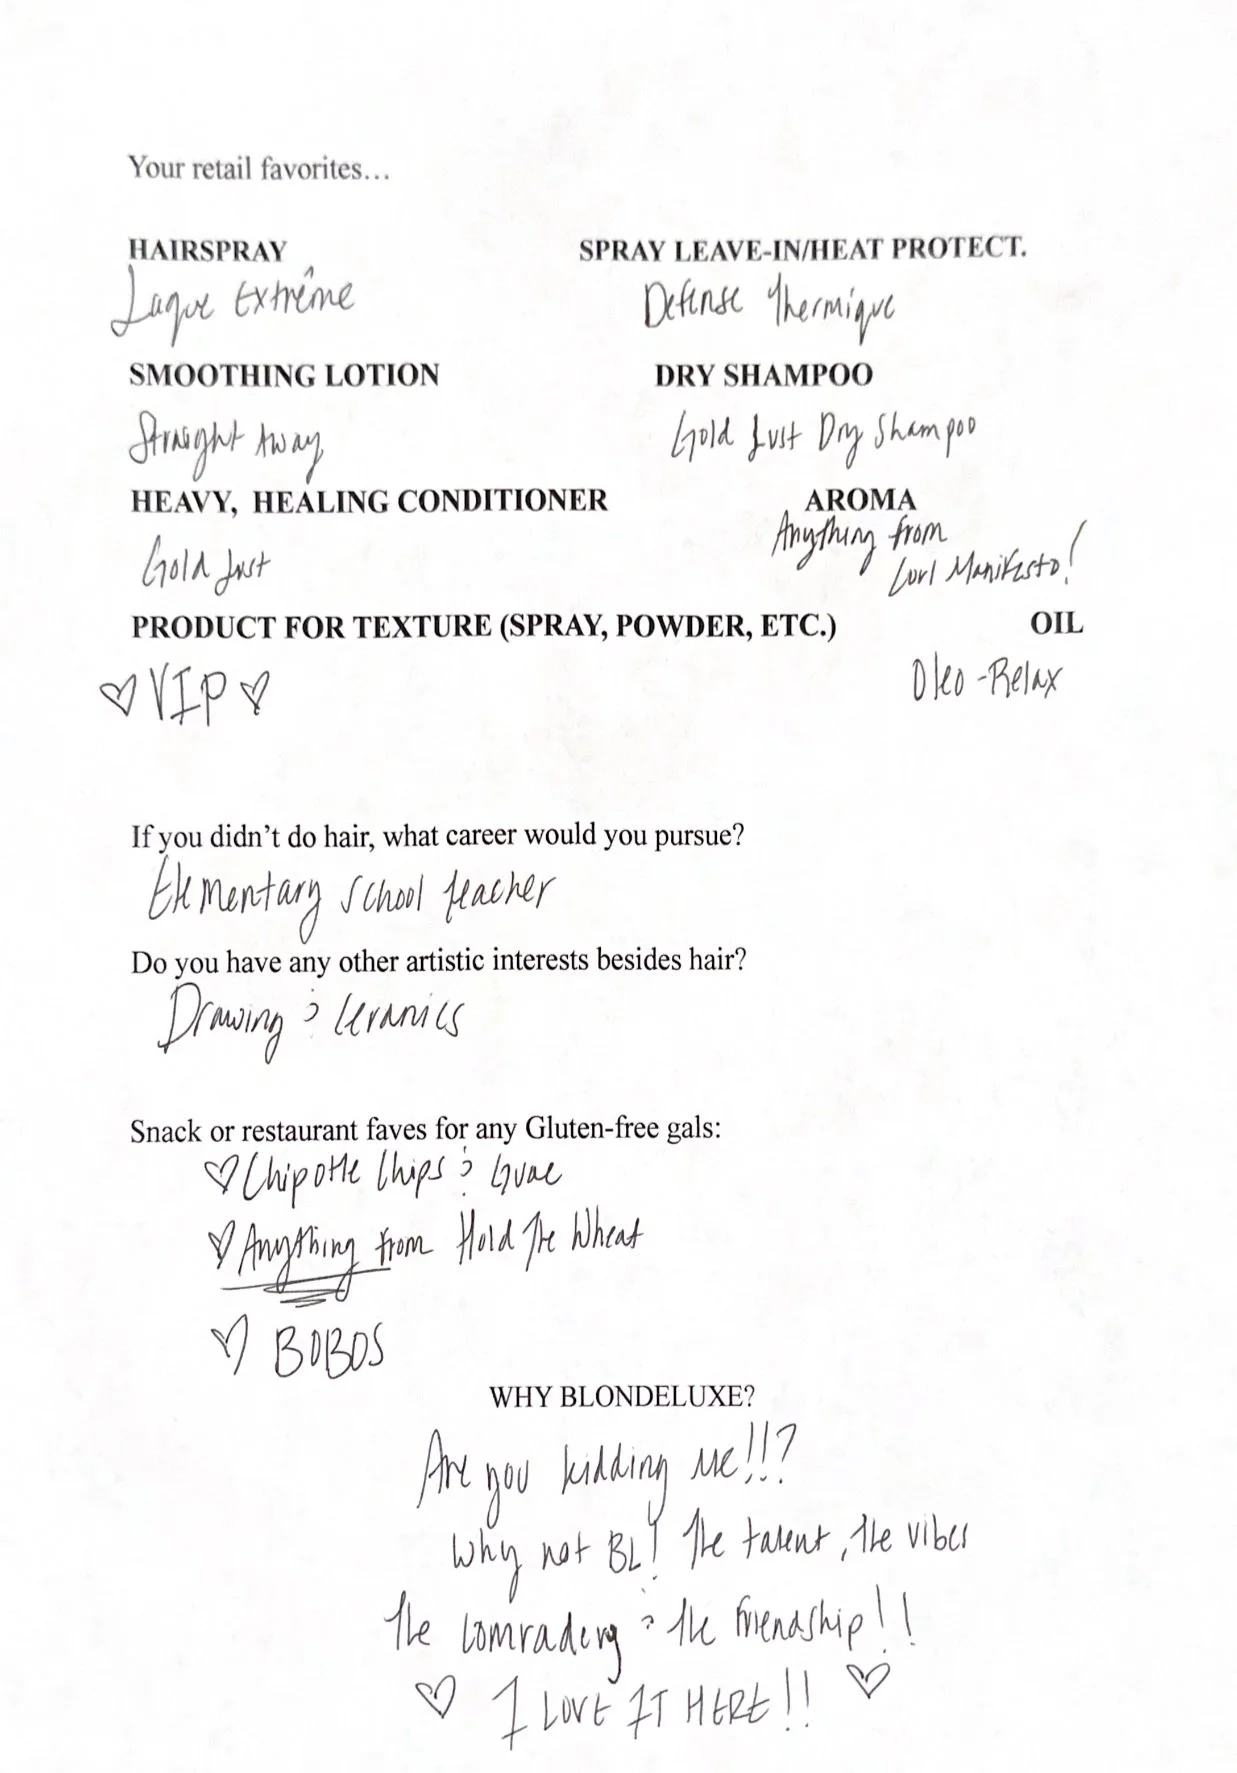 Your retail favorites...
HAIRSPRAY SPRAY LEAVE-IN/HEAT PROTECT.
Laque Extrême Defense Thermique
SMOOTHING LOTION DRY SHAMPOO
Straight Away Gold Lust Dry Shampoo
HEAVY, HEALING CONDITIONER AROMA
Gold Lust Anything from
Curl Manifesto!
PRODUCT FOR TEXTURE (SPRAY, POWDER, ETC.) OIL
♡ VIP ♡ Oleo-Relax
If you didn't do hair, what career would you pursue?
Elementary School teacher
Do you have any other artistic interests besides hair?
Drawing & Ceramics
Snack or restaurant faves for any Gluten-free gals:
♡ Chipotle Chips & Guac
♡ Anything from Hold The Wheat
♡ BOBOS
WHY BLONDELUXE?
Are you kidding me!!!?
Why not BL! The talent, the vibes
the comradery & the friendship!!
♡ I LOVE IT HERE!! ♡